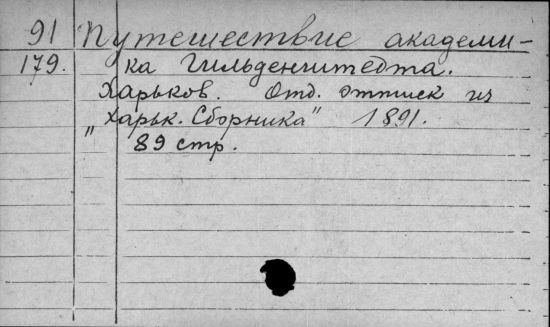 91 Путешествие академи-
179. ка Гильденштедта.
Харьков. Отд. оттиск из
„Харьк. Сборника" 1891.
89 стр.